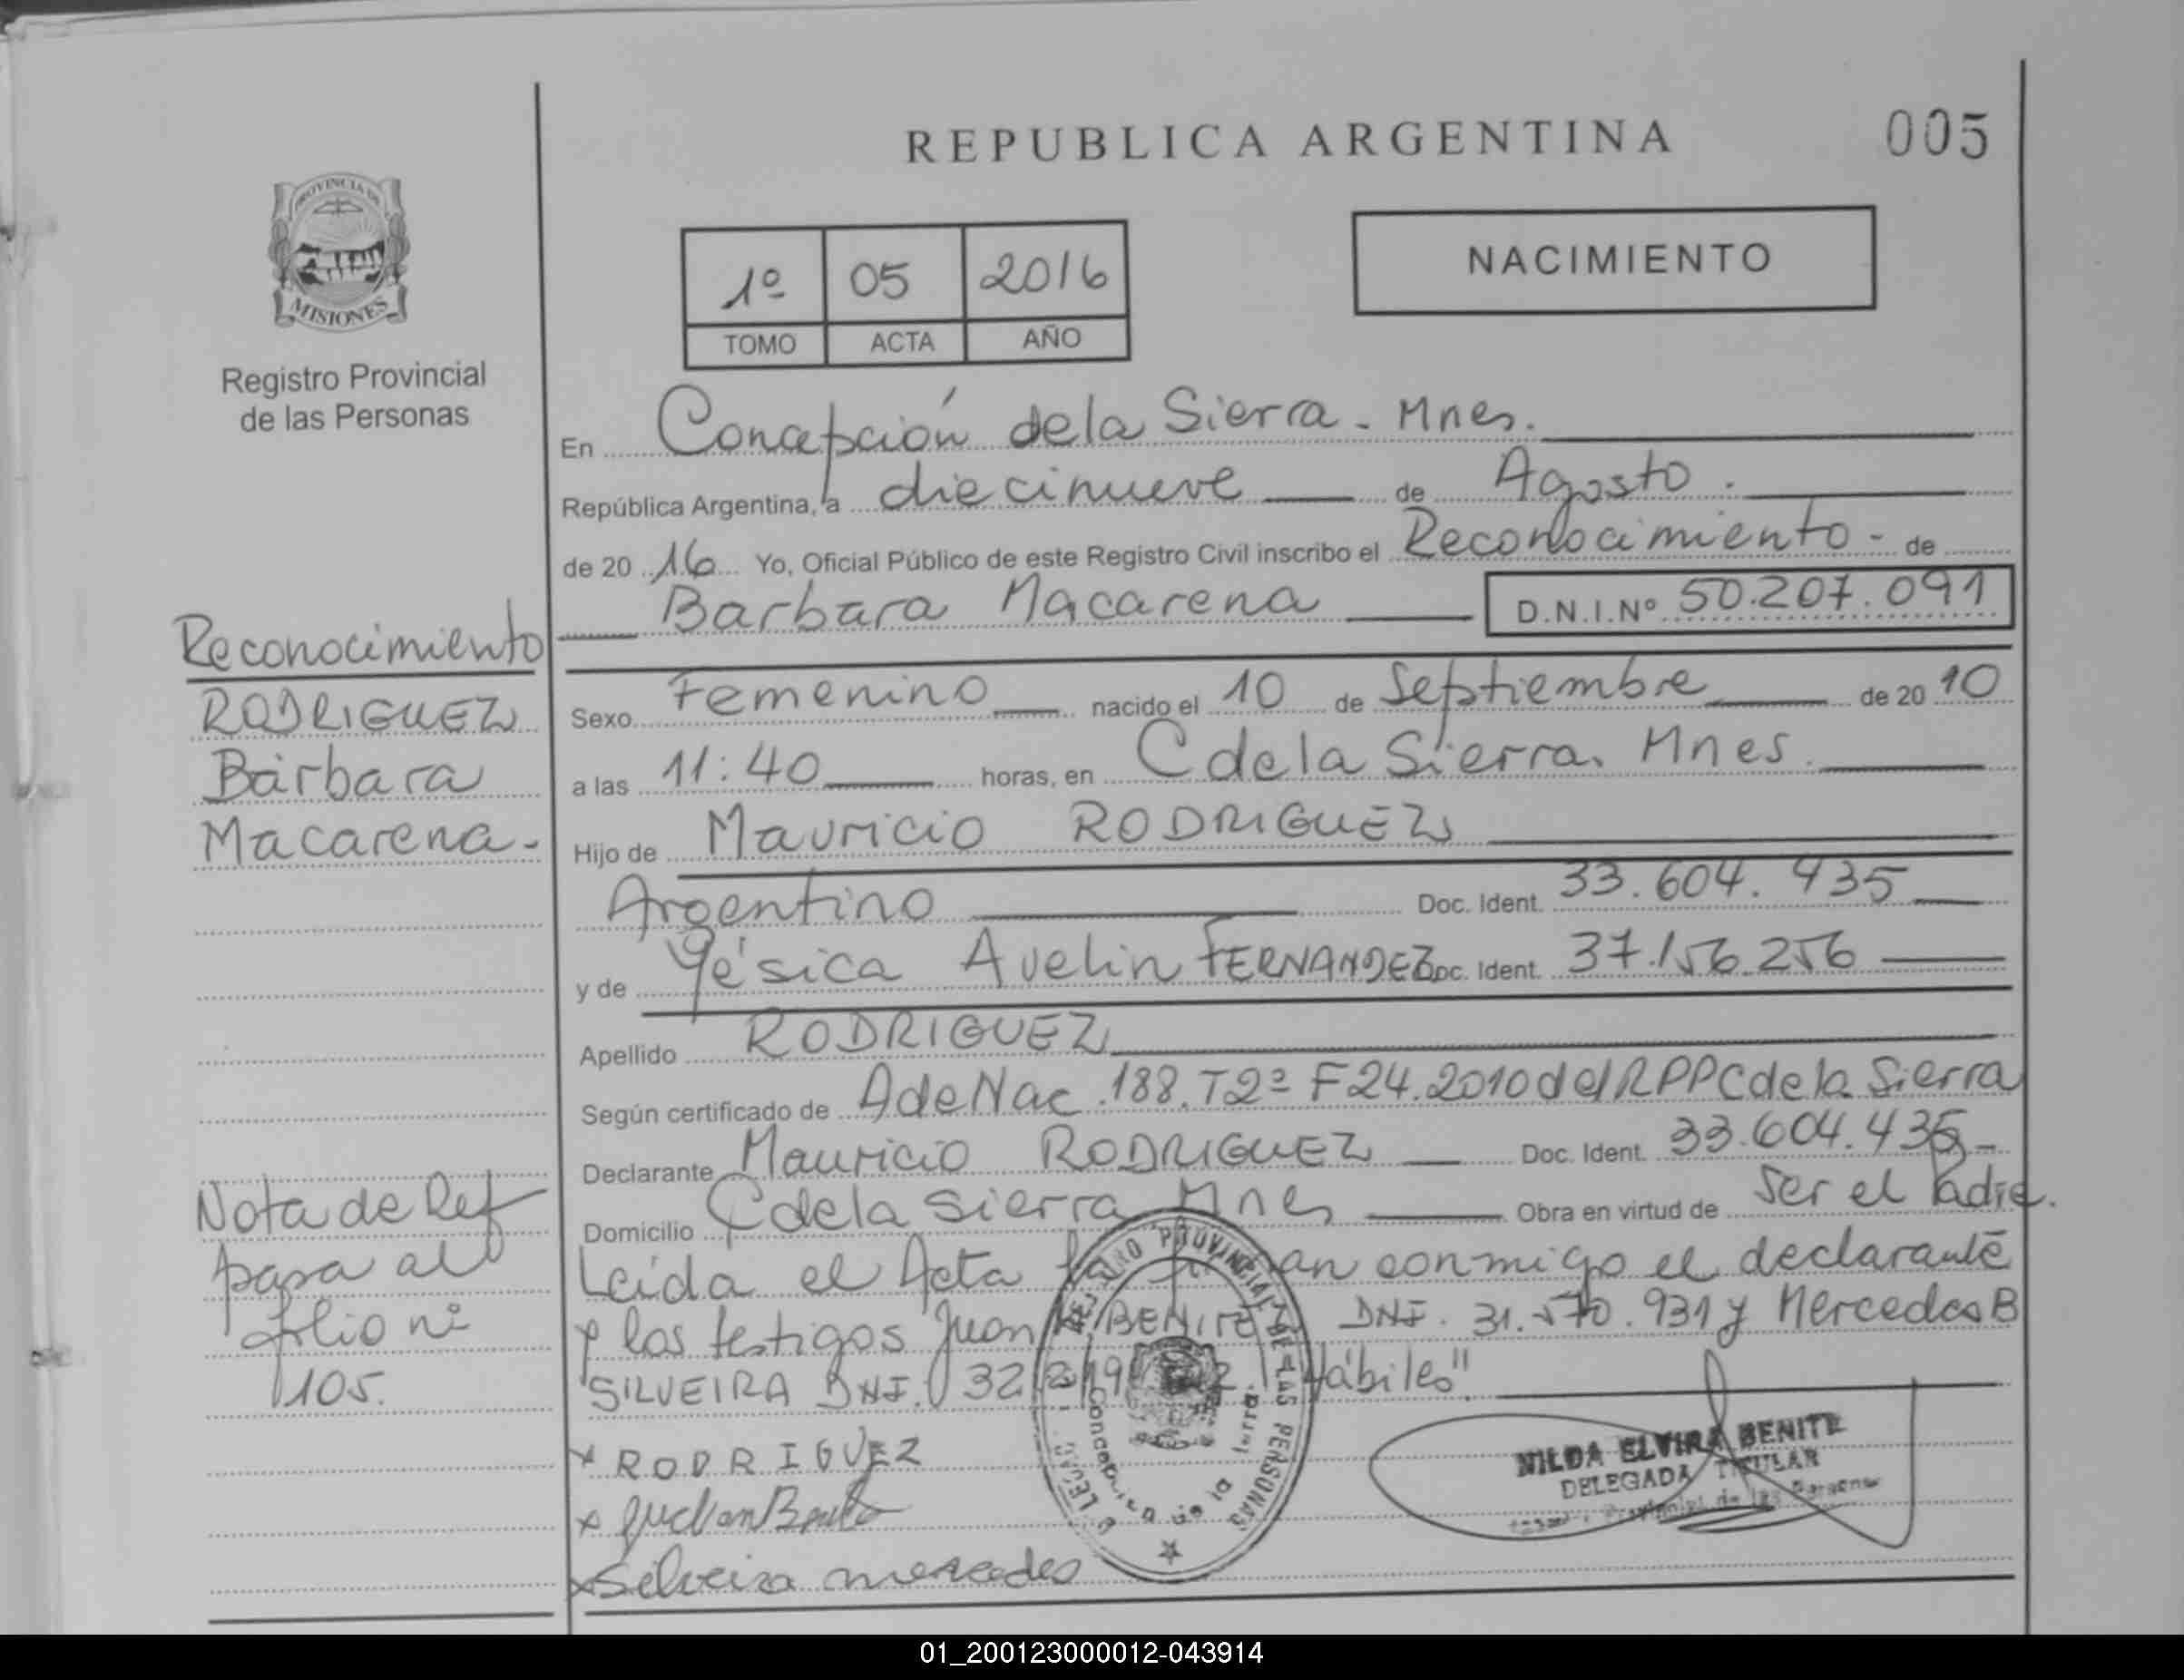 REPUBLICA ARGENTINA
005
PROVINCIA DE
MISIONES
Registro Provincial
de las Personas
1º 05 2016
TOMO ACTA AÑO
NACIMIENTO
En Concepción de la Sierra. Mnes.
República Argentina, a diecinueve de Agosto.
de 20 16 Yo, Oficial Público de este Registro Civil inscribo el Reconocimiento - de
Barbara Macarena D.N.I.Nº 50.207.091
Reconocimiento
RODRIGUEZ
Bárbara
Macarena.-
Sexo Femenino nacido el 10 de Septiembre de 20 10
a las 11:40 horas, en C de la Sierra. Mnes.
Hijo de Mauricio RODRIGUEZ
Argentino Doc. Ident. 33.604.435
y de Yésica Avelin FERNANDEZ Doc. Ident. 37.156.256
Apellido RODRIGUEZ
Según certificado de A de Nac. 188. T2º F24. 2010 del RPP C de la Sierra
Declarante Mauricio RODRIGUEZ Doc. Ident. 33.604.435-
Domicilio C de la Sierra Mnes Obra en virtud de Ser el Padre.
Leida el Acta la firman conmigo el declarante
y los testigos Juan BENITEZ DNI. 31.570.931 y Mercedes B
SILVEIRA DNI. 32 Hábiles"
Nota de Ref
pasa al
folio nº
105.
x RODRIGUEZ
x
x Silveira mercedes
REGISTRO PROVINCIAL DE LAS PERSONAS
Concepción de la Sierra
NILDA ELVIRA BENITE
DELEGADA TITULAR
Provincial de las Personas
01_200123000012-043914